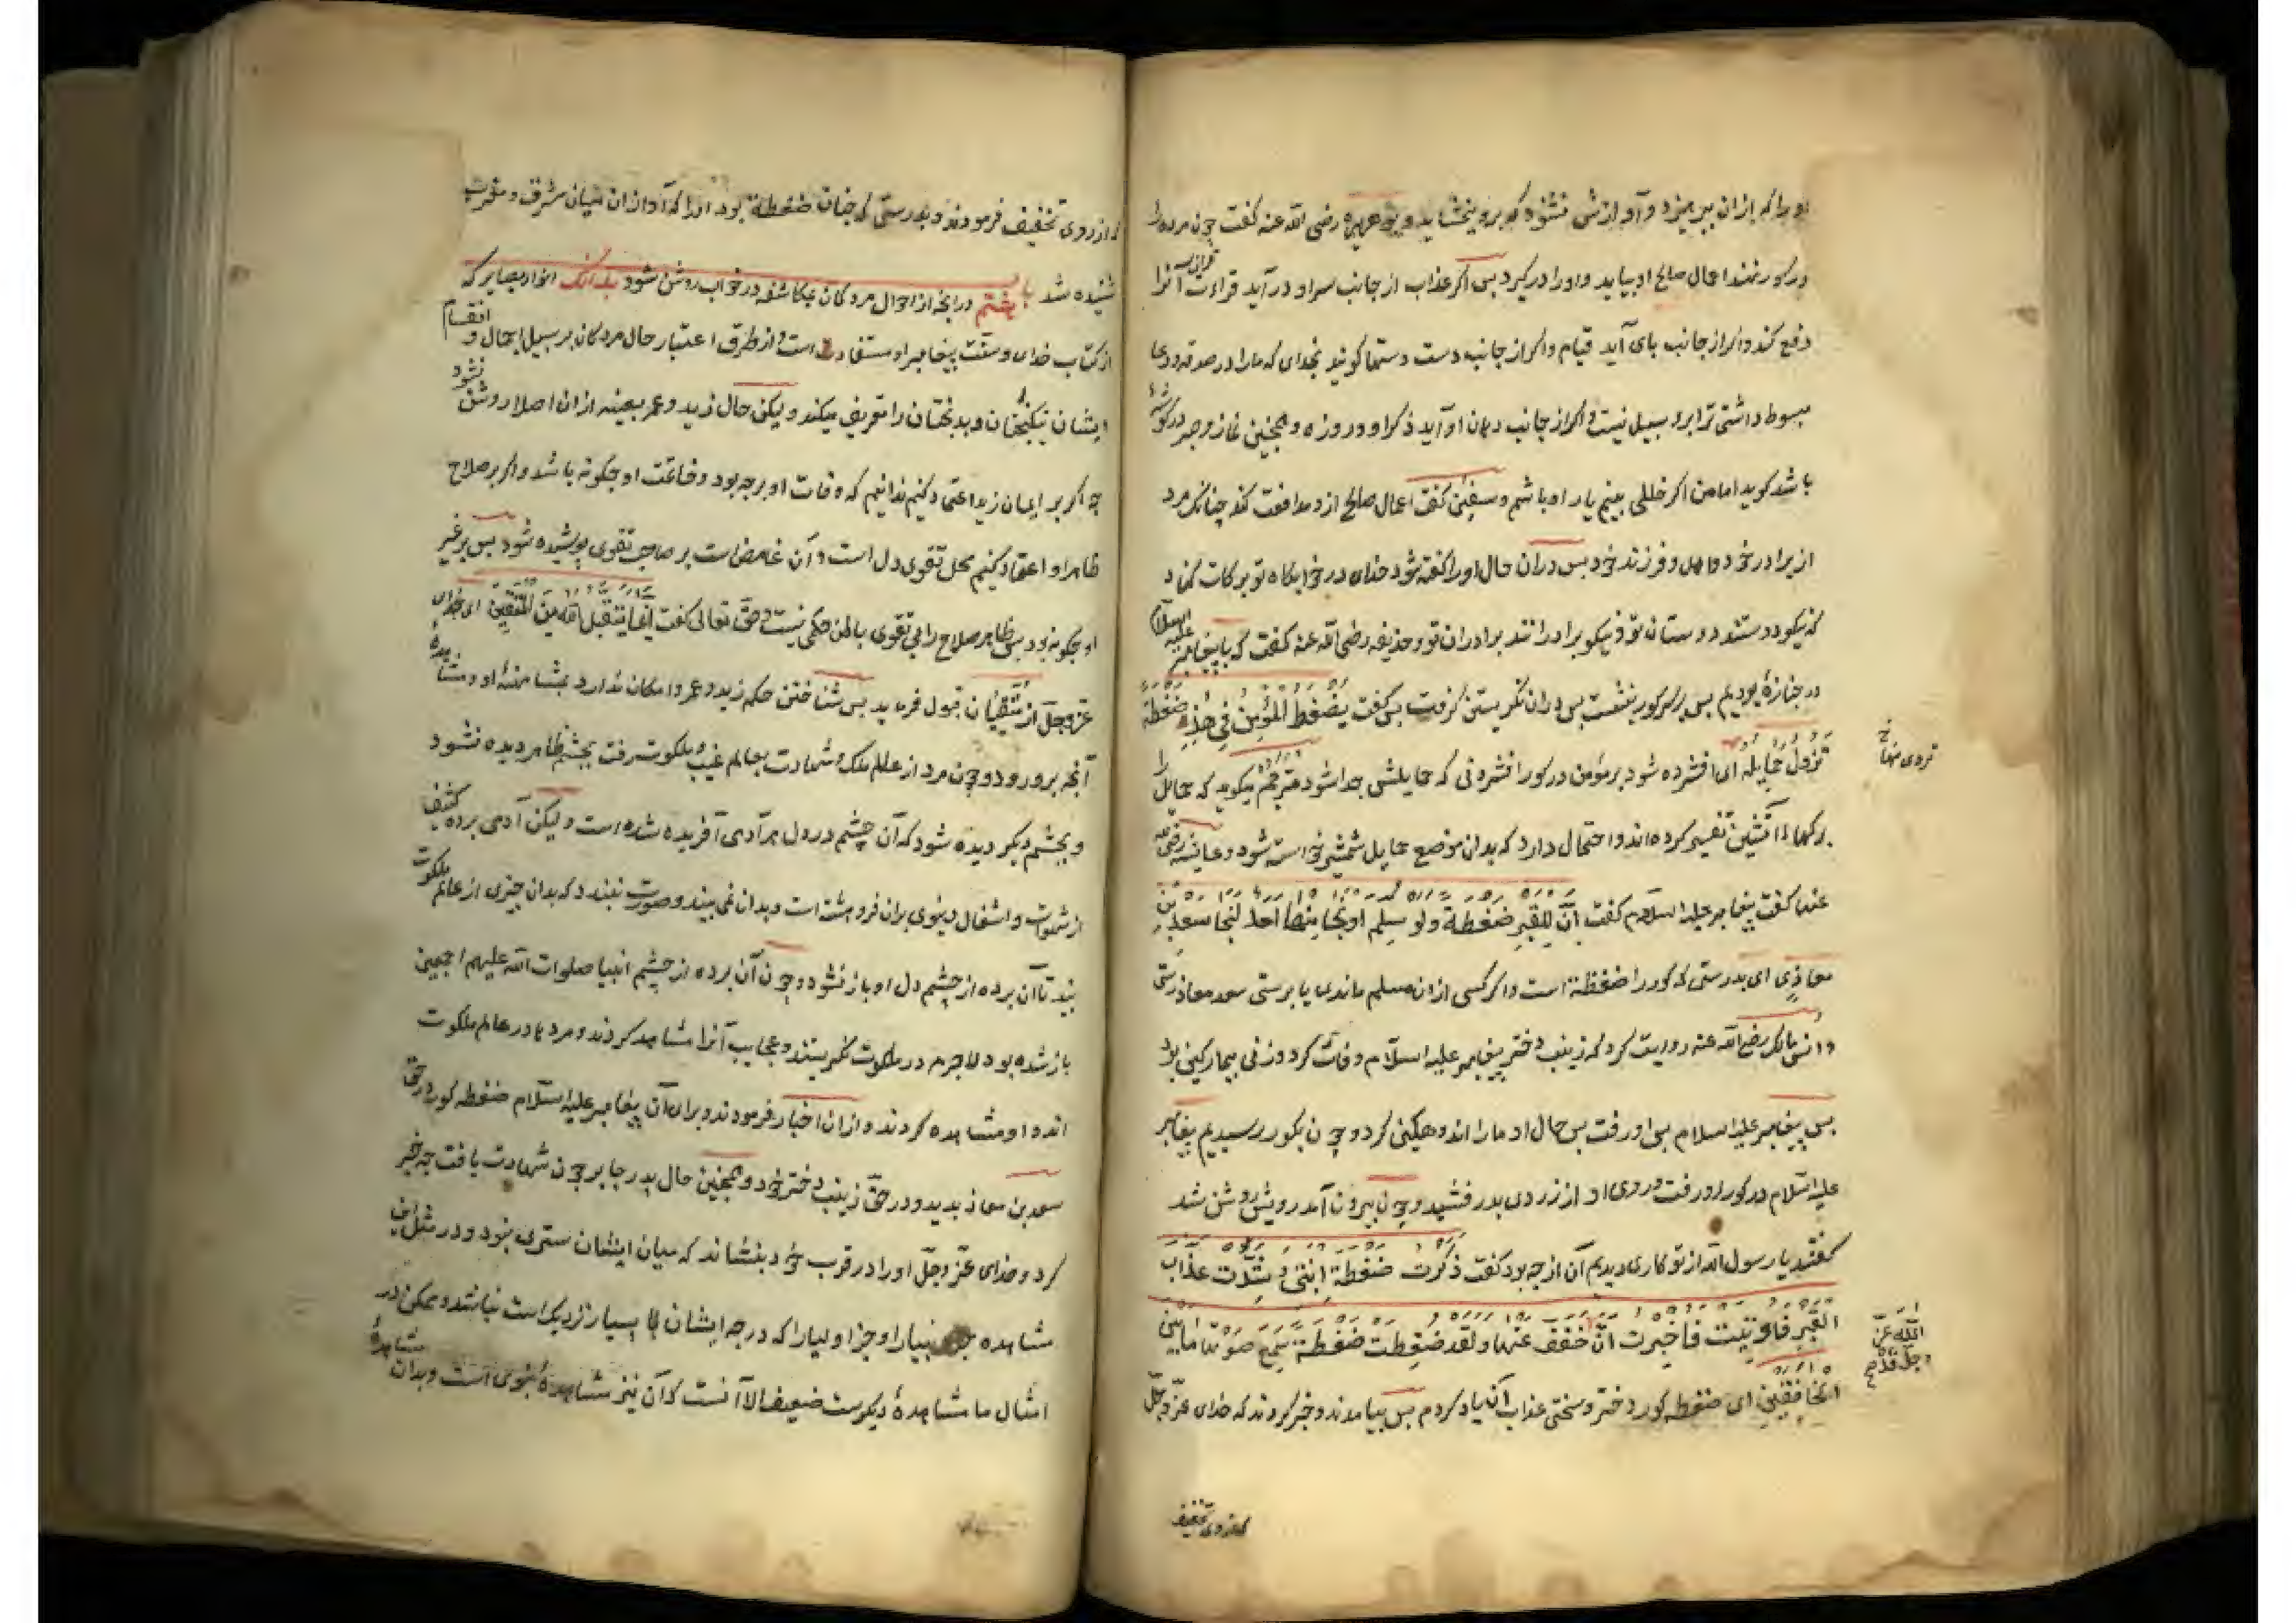 او را که ازان بپرهیزد و آوازش نشنود که برو ببخشاید و بوهریره رضی الله عنه کفت چون مرده را
در کور نهند اعمال صالح او بیاید و او را در کیرد بس اکر عذاب از جانب سر او در آید قراءت قرآن آنرا
دفع کند و اکر از جانب بای آید قیام و اکر از جانب دست دستها کویند بخدای که ما را در صدقه و دعا
مبسوط داشتی ترا برو سبیل نیست و اکر از جانب دهان او آید ذکر او و روزه و همچنین نماز و صبر در کوشه
باشد کوید اما من اکر خللی بینم یار او باشم و سفین کفت اعمال صالح ازو مدافعت کند چنانک مرد
از برادر خود و اهل و فرزند خود بس دران حال او را کفته شود خدای در خوابکاه تو برکات کناد
که نیکو دوستند دوستان تو و نیکو برادرانند برادران تو و حذیفه رضی الله عنه کفت که با پیغامبر علیه السلام
در جنازهٔ بودیم بس بر سر کور بنشست بس دران نکریستن کرفت بس کفت یضغط المؤمن فی هذه ضغطة
تزول حمایله ای افشرده شود بر مؤمن در کور افشردنی که حمایلش جدا شود مترجم میکوید که حمایل را
برکهاء انثیین تفسیر کرده اند و احتمال دارد که بدان موضع حمایل شمشیر خواسته شود و عایشه رضی الله
عنها کفت پیغامبر علیه السلام کفت ان للقبر ضغطة و لو سلم او نجا منها احد لنجا سعد بن
معاذ ای بدرستی که کور را ضغطه است و اکر کسی ازان مسلم ماندی یا برستی سعد معاذ رستی
و انس مالک رضی الله عنه روایت کرد که زینب دختر پیغامبر علیه السلام وفات کرد و زنی بیمارکین بود
بس پیغامبر علیه السلام بی او رفت بس حال او ما را اندوهکین کرد و چون بکور رسیدیم پیغامبر
علیه السلام در کور او رفت و روی او از زردی بدرفشید و چون بیرون آمد رویش روشن شد
کفتند یا رسول الله از تو کاری دیدیم آن از چه بود کفت ذکرت ضغطة ابنتی و شدت عذاب
القبر فاتیت فاخبرت ان الله عز و جل قد خفف عنها و لقد ضغطت ضغطة سمع صوتها ما بین
الخافقین ای ضغطه کور دختر و سختی عذاب آن یاد کردم بس بیامدند و خبر کردند که خدای عز و جل
که ازروی تخفیف
که ازروی تخفیف فرمودند و بدرستی که چنان ضغطه بود او را که آواز آن میان مشرق و مغرب
شنیده شد باب هشتم در آنچه از احوال مردکان بمکاشفه در خواب روشن شود بدانک انوار بصایر که
از کتاب خدای و سنت پیغامبر او مستفاد است و از طرق اعتبار حال مردکان بر سبیل اجمال و انقسام
ایشان نیکبختان و بدبختان را تعریف میکند و لیکن حال زید و عمر بعینه ازان اصلا روشن نشود
چه اکر بر ایمان زید اعتماد کنیم ندانیم که وفات او بر چه بود و خاتمت او چکونه باشد و اکر بر صلاح
ظاهر او اعتقاد کنیم محل تقوی دل است و آن غامض است بر صاحب تقوی پوشیده شود بس بر غیر
او چکونه بود بس ظاهر صلاح را بی تقوی باطن حکمی نیست و حق تعالی کفت انما یتقبل الله من المتقین ای خدای
عز و جل از متقیان قبول فرماید بس شناختن حکم زید و عمرو امکان ندارد بمشاهدهٔ او و مشاهدهٔ
آنچه برو رود و چون مرد از عالم ملک و شهادت بعالم غیب و ملکوت رفت بچشم ظاهر دیده نشود
و بچشم دیکر دیده شود که آن چشم در دل هر آدمی آفریده شده است و لیکن آدمی برده کثیف
از شهوات و اشغال دنیوی بران فروهشته است و بدان نمی بیند و صورت نبندد که بدان چیزی از عالم ملکوت
بیند تا آن برده از چشم دل او باز نشود و چون آن برده از چشم انبیا صلوات الله علیهم اجمعین
باز شده بود لاجرم در ملکوت نکریستند و عجایب آنرا مشاهده کردند و مردها در عالم ملکوت
اند او مشاهده کردند و ازان اخبار فرمودند و برای آن پیغامبر علیه السلام ضغطه کور در حق
سعد بن معاذ بدید و در حق زینب دختر خود و همچنین حال پدر جابر چون شهادت یافت چه خبر
کرد و خدای عز و جل او را در قرب خود بنشاند که میان ایشان ستری نبود و در مثل این
مشاهده جز انبیا را و جز اولیا را که درجه ایشان بسیار نزدیک است نباشد و ممکن در
امثال ما مشاهدهٔ دیکرست ضعیف الا آنست که آن نیز مشاهدهٔ نبوی است و بدان مشاهدهٔ